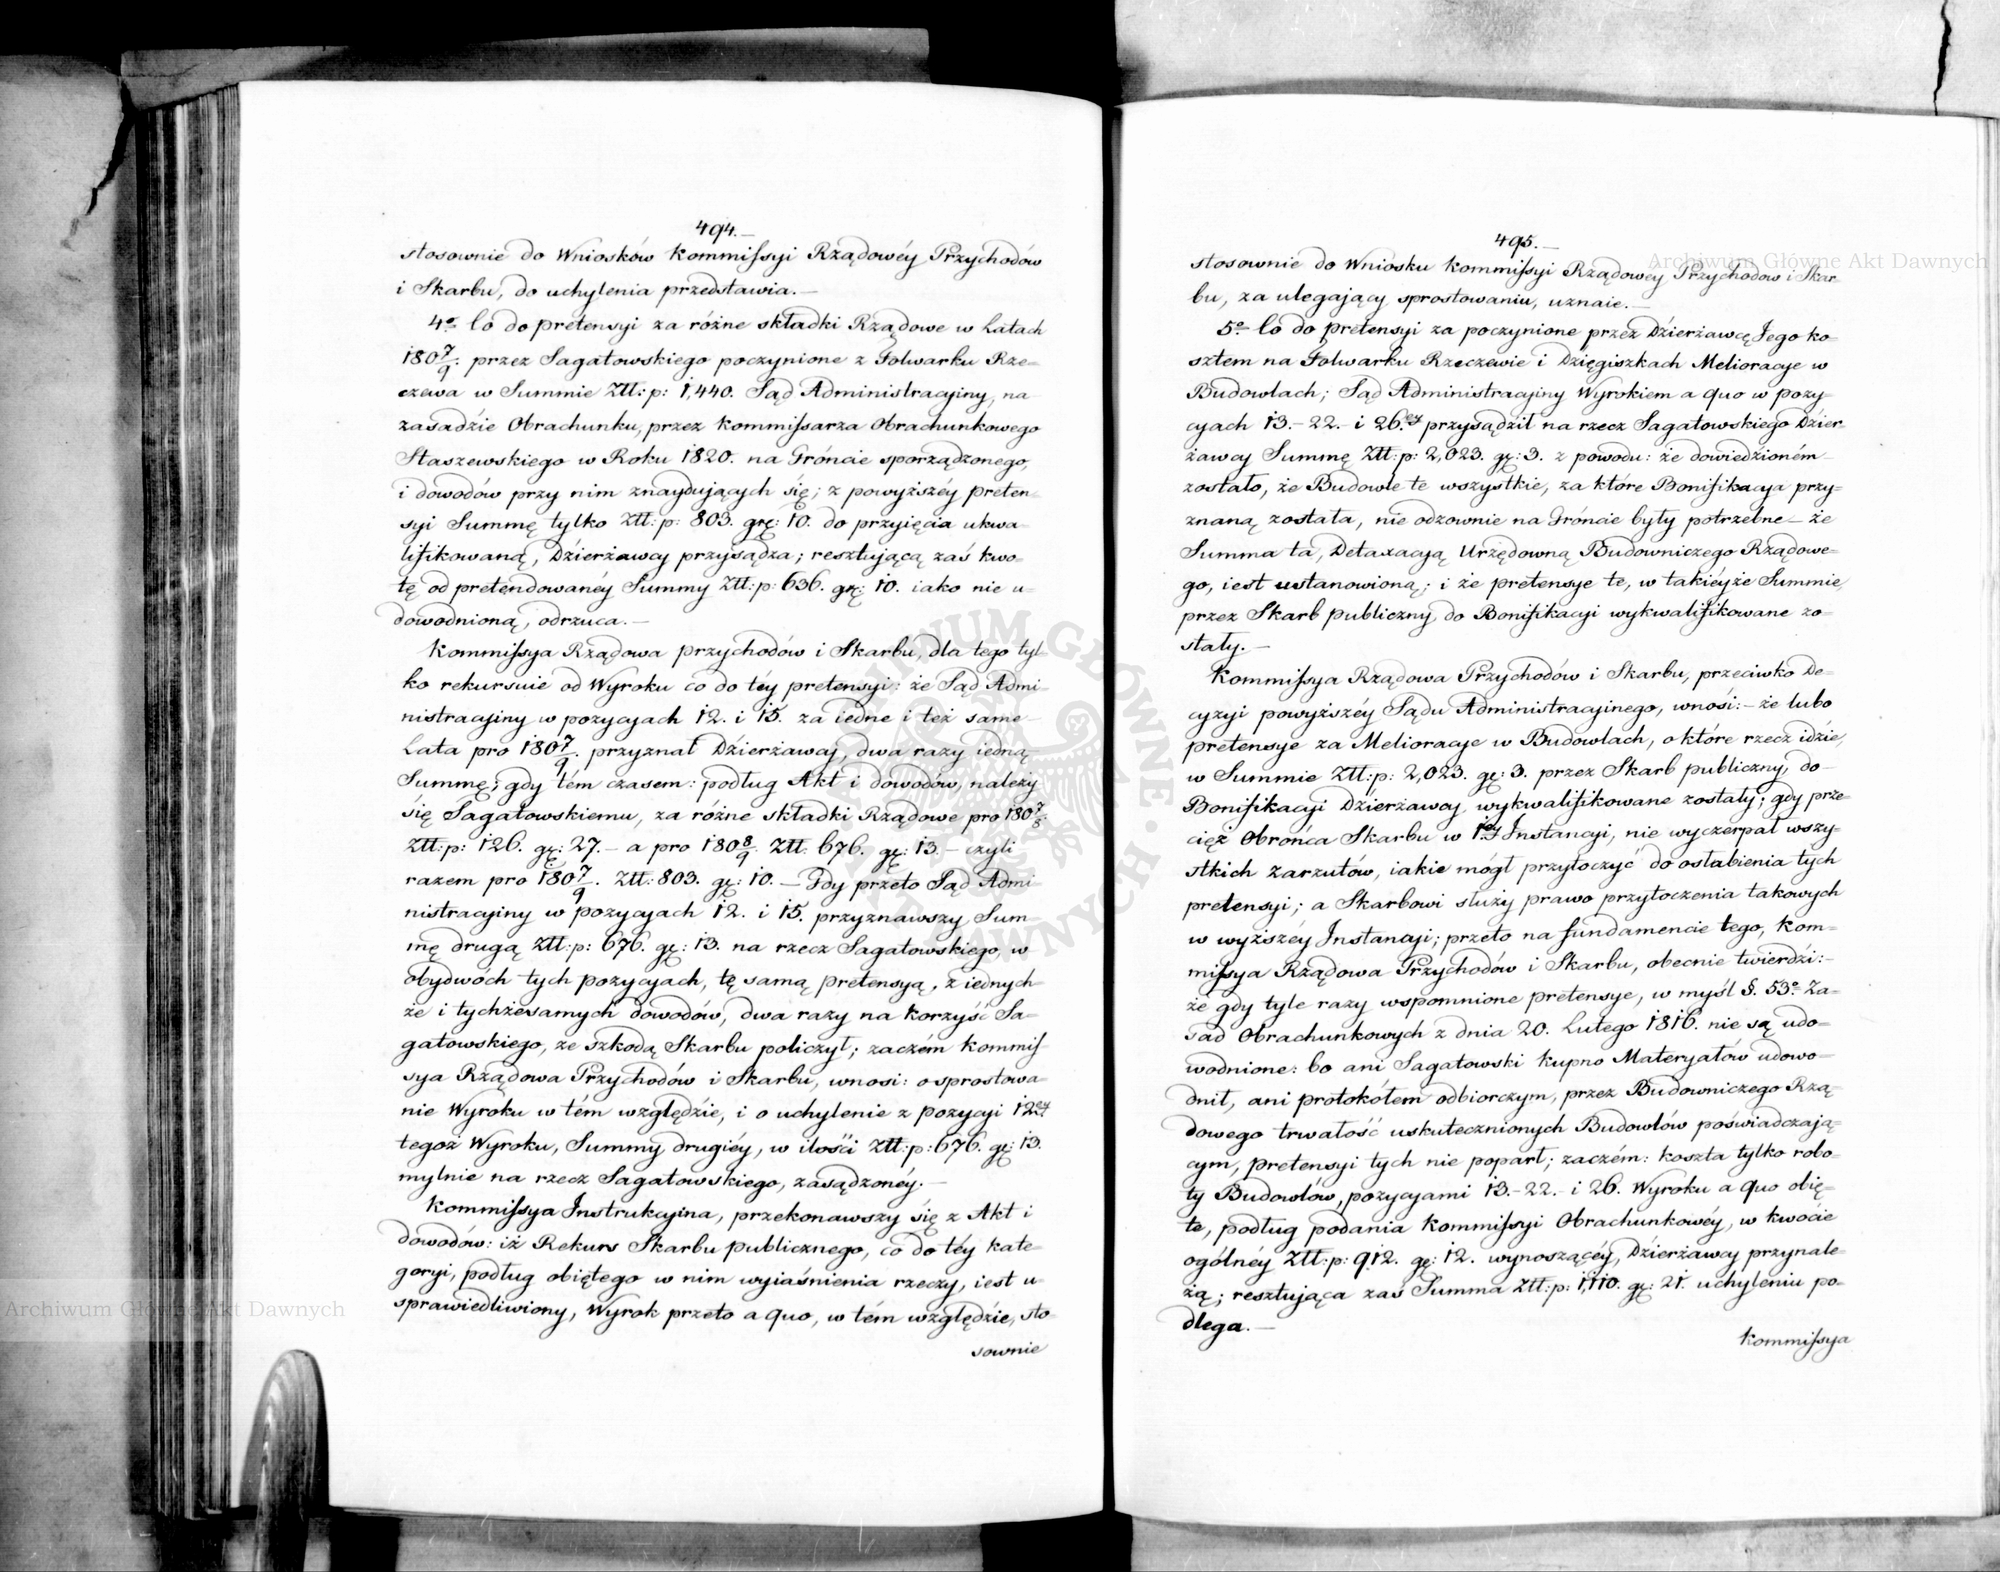 494.
stosownie do Wniosków Kommissyi Rządowéy Przychodów
i Skarbu, do uchylenia przedstawia.—
4º Co do pretensyi za różne składki Rządowe w Latach
1807/9. przez Sagatowskiego poczynione z Folwarku Rze-
czewa w Summie Złł: p: 1,440. Sąd Administracyiny, na
zasadzie Obrachunku, przez Kommissarza Obrachunkowego
Staszewskiego w Roku 1820. na Gróncie sporządzonego,
i dowodów przy nim znaydujących się; z powyższéy preten-
syi Summę tylko Złł: p: 803. gr: 10. do przyięcia ukwa-
lifikowaną, Dzierżawcy przysądza; resztującą zaś kwo-
tę od pretendowanéy Summy Złł: p: 636. gr: 10. iako nie u-
dowodnioną, odrzuca.—
Kommissya Rządowa przychodów i Skarbu, dla tego tyl-
ko rekursuie od Wyroku co do téy pretensyi: że Sąd Admi-
nistracyiny w pozycyach 12. i 15. za iedne i też same
Lata pro 1807/9. przyznał Dzierżawcy, dwa razy iedną
Summę; gdy tém czasem: podług Akt i dowodów, należy
się Sagatowskiemu, za różne składki Rządowe pro 1807/8.
Złł: p: 126. gr: 27.— a pro 1808/9. Złł. 676. gr: 13.— czyli
razem pro 1807/9. Złł: 803. gr: 10.— Gdy przeto Sąd Admi-
nistracyiny w pozycyach 12. i 15. przyznawszy Sum-
mę drugą Złł: p: 676. gr: 13. na rzecz Sagatowskiego, w
obydwóch tych pozycyach, tę samą pretensyą, z iednych-
że i tychżesamych dowodów, dwa razy na korzyść Sa-
gatowskiego, ze szkodą Skarbu policzył; zaczém Kommis-
sya Rządowa Przychodów i Skarbu, wnosi: o sprostowa-
nie Wyroku w tém względzie, i o uchylenie z pozycyi 12ey
tegoż Wyroku, Summy drugiéy, w ilości Złł: p: 676. gr: 13.
mylnie na rzecz Sagatowskiego, zasądzonéy.—
Kommissya Instrukcyina, przekonawszy się z Akt i
dowodów: iż Rekurs Skarbu publicznego, co do téy kate-
goryi, podług obiętego w nim wyiaśnienia rzeczy, iest u-
sprawiedliwiony, Wyrok przeto a quo, w tém względzie, sto-
sownie
495.
stosownie do Wniosku Kommissyi Rządowey Przychodow i Skar-
bu, za ulegający sprostowaniu, uznaie.—
5º Co do pretensyi za poczynione przez Dzierżawcę Jego ko-
sztem na Folwarku Rzeczewie i Dzięgiszkach Melioracye w
Budowlach; Sąd Administracyiny Wyrokiem a quo w pozy-
cyach 13.- 22.- i 26.ey przysądził na rzecz Sagatowskiego Dzier-
żawcy Summę Złł: p: 2,023. gr: 3. z powodu: że dowiedzioném
zostało, że Budowle te wszystkie, za które Bonifikacya przy-
znaną została, nie odzownie na Gróncie były potrzebne— że
Summa ta, Detaxacyą Urzędowną Budowniczego Rządowe-
go, iest ustanowioną; i że pretensye te, w takiéyże Summie,
przez Skarb publiczny do Bonifikacyi wykwalifikowane zo-
stały.—
Kommissya Rządowa Przychodów i Skarbu, przeciwko De-
cyzyi powyższéy Sądu Administracyinego, wnosi:- że lubo
pretensye za Melioracye w Budowlach, o które rzecz idzie,
w Summie Złł: p: 2,023. gr: 3. przez Skarb publiczny, do
Bonifikacyi Dzierżawcy wykwalifikowane zostały; gdy prze-
cięż Obrońca Skarbu w 1éy Instancyi, nie wyczerpał wszy-
stkich zarzutów, iakie mógł przytoczyć do osłabienia tych
pretensyi; a Skarbowi służy prawo przytoczenia takowych
w wyższéy Instancyi; przeto na fundamencie tego, Kom-
missya Rządowa Przychodów i Skarbu, obecnie twierdzi:-
że gdy tyle razy wspomnione pretensye, w myśl §. 53º Za-
sad Obrachunkowych z dnia 20. Lutego 1816. nie są udo-
wodnione: bo ani Sagatowski kupno Materyałów udowo-
dnił, ani protokółem odbiorczym, przez Budowniczego Rzą-
dowego trwałość uskutecznionych Budowlów poświadczają-
cym, pretensyi tych nie poparł; zaczém: koszta tylko robo-
ty Budowlów, pozycyami 13.- 22.- i 26. Wyroku a quo obię-
te, podług podania Kommissyi Obrachunkowéy, w kwocie
ogólnéy Złł: p: 912. gr: 12. wynoszącéy, Dzierżawcy przynale-
żą; resztująca zaś Summa Złł: p: 1,110. gr: 21. uchyleniu po-
dlega.—
Kommissya
Archiwum Główne Akt Dawnych
Archiwum Główne Akt Dawnych
ARCHIWUM GŁÓWNE AKT DAWNYCH